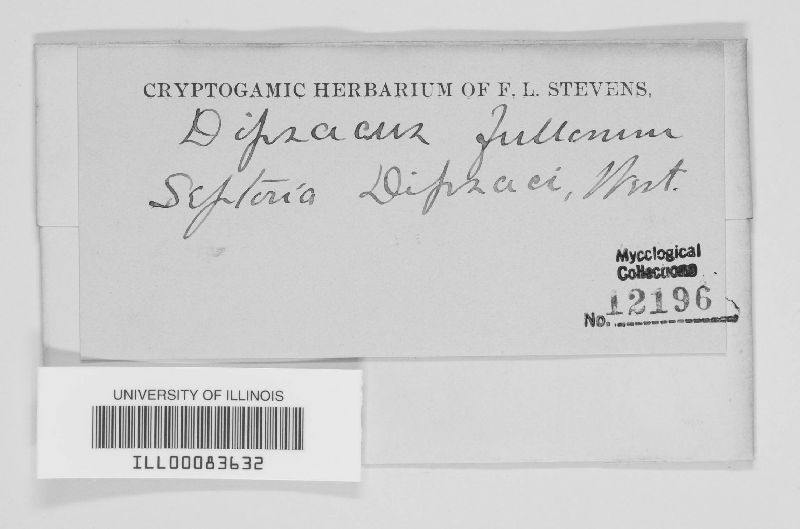 CRYPTOGAMIC HERBARIUM OF F. L. STEVENS,
Dipsacus fullonum
Septoria Dipsaci, West.
Mycological
Collections
No. 12196
UNIVERSITY OF ILLINOIS
ILL00083632